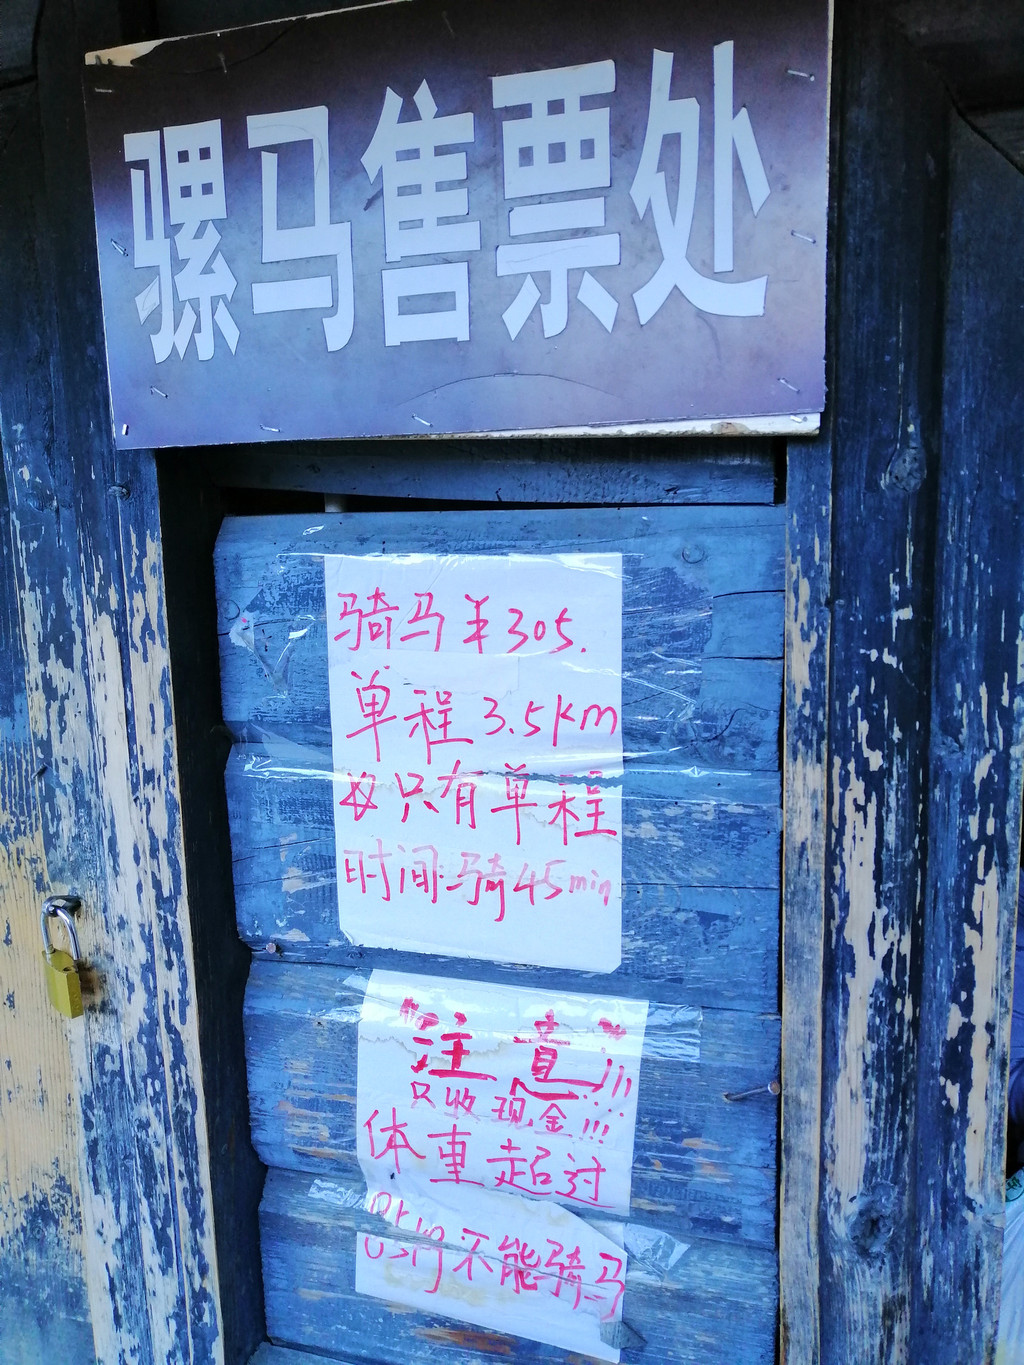 骡马售票处
骑马¥305.
单程3.5km
只有单程
时间:骑45min
"注意"!!!
只收现金!!!
体重超过
85kg不能骑马